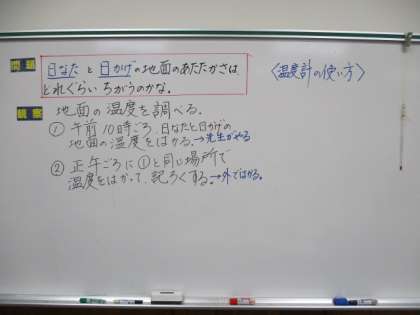 問題
日なた と 日かげの地面のあたたかさは、
どれぐらいちがうのかな。
〈温度計の使い方〉
観察
地面の温度を調べる。
① 午前10時ごろ、日なたと日かげの
地面の温度をはかる。→先生がやる
② 正午ごろに①と同じ場所で
温度をはかって、記ろくする。→外ではかる。